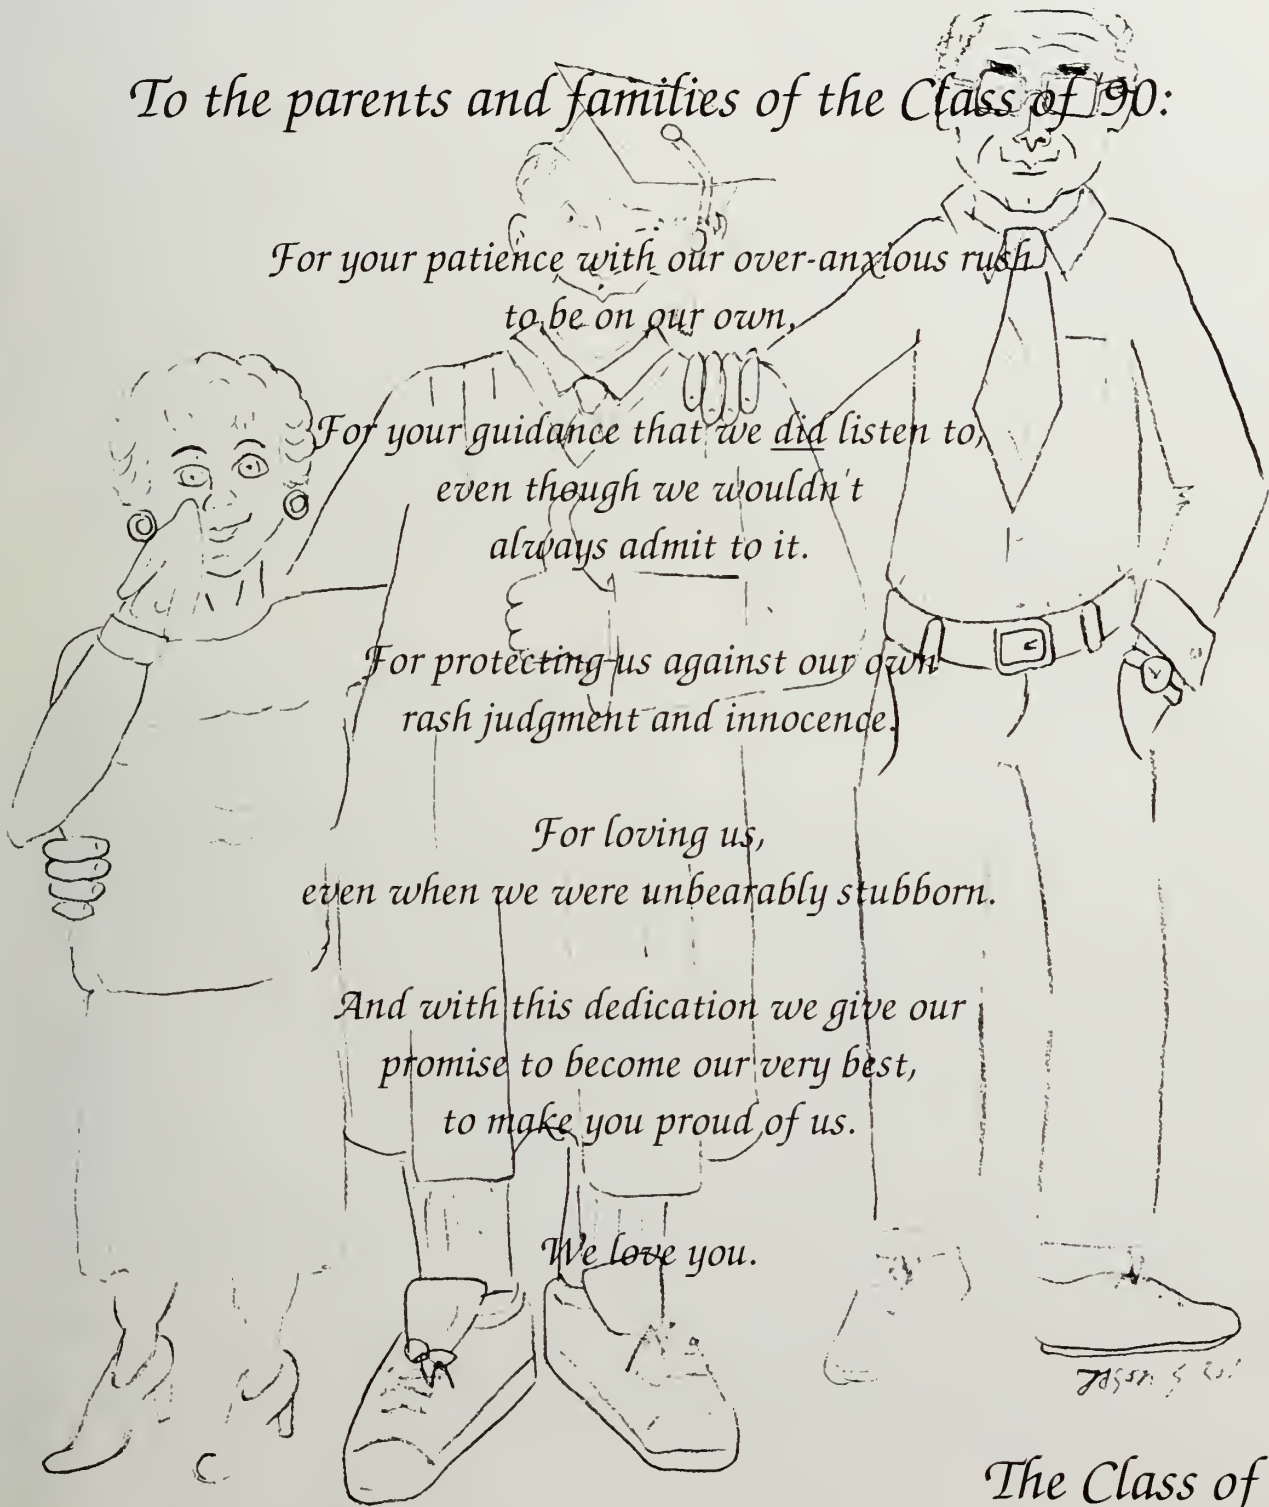 To the parents and families of the Class of '90:
For your patience with our over-anxious rush
to be on our own,
For your guidance that we did listen to,
even though we wouldn't
always admit to it.
For protecting us against our own
rash judgment and innocence.
For loving us,
even when we were unbearably stubborn.
And with this dedication we give our
promise to become our very best,
to make you proud of us.
We love you.
The Class of